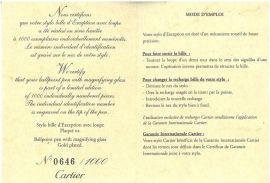 Nous certifions
que votre stylo bille d'Exception avec loupe
a été réalisé en série limitée
à 1000 exemplaires individuellement numérotés.
Le numéro individuel d'identification
est gravé sur le bec du stylo.
We certify
that your ballpoint pen with magnifying glass
is part of a limited edition
of 1000 individually numbered pieces.
The individual identification number
is engraved on the tip of the pen.
Stylo bille d'Exception avec loupe
Plaqué or.
Ballpoint pen with magnifying glass
Gold plated.
N° 0646 / 1000
Cartier
MODE D'EMPLOI
Votre stylo d'Exception est doté d'un mécanisme rotatif de haute
précision.
Pour faire sortir la bille :
Tourner le haut du stylo dans le sens des aiguilles d'une
montre. L'opération inverse permettra de rétracter la bille.
Pour changer la recharge bille de votre stylo :
- Dévisser le bec du stylo.
- Oter la recharge usagée en la tirant par la pointe.
- Introduire la nouvelle recharge.
- Revisser le bec du stylo.
L'utilisation exclusive de recharge Cartier conditionne l'application
de la Garantie Internationale Cartier.
Garantie Internationale Cartier :
Votre stylo Cartier bénéficie de la Garantie Internationale Cartier
dont les termes sont définis dans le Certificat de Garantie
Internationale joint à votre stylo.